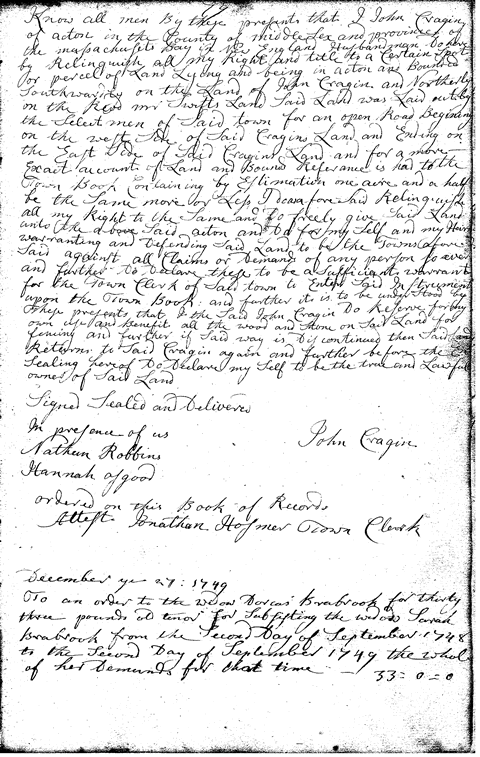 Know all men By these presents that I John Cragin
of acton in the County of middlesex and province of
the massachusets Bay in New England Husbandman Do hereby
by Relinquish all my Right and title to a Certain Spot
or percel of Land Lying and being in acton and Bounded
Southwardly on the Land of John Cragin and Northerly
on the Revd mr Swifts Land Said Land was Laid out by
the Select men of Said town for an open Road Begining
on the west Side of Said Cragins Land and Ending on
the East Side of Said Cragins Land and for a more
Exact account of Land and Bound Referance is had to the
Town Book Containing by Estimation one acre and a half
be the Same more or Less I do afore said Relinquish
all my Right to the Same and Do freely give Said Land
unto the above Said acton and Do for my Self and my Heirs
warranting and Defending Said Land to be the Towns afore
Said against all Claims or Demands of any person so ever
and further Do Declare these to be a Sufficient warrant
for the Town Clerk of Said town to Enter Said Instrument
upon the Town Book: and further it is to be under Stood by
these presents that I the Said John Cragin Do Reserve for my
own use and Benefit all the wood and Stone on Said Land for
fencing and further if Said way is Discontinued then Said Land
Returns to Said Cragin again and further before the
Sealing hereof Do Declare my Self to be the true and Lawful
owner of Said Land
Signed Sealed and Delivered
In presence of us
John Cragin
Nathan Robbins
Hannah osgood
ordered on this Book of Records
Attest Jonathan Hosmer Town Clerk
December ye 27: 1749
To an order to the widow Dorcas Brabrook for thirty
three pounds old tenor for Subsisting the widow Sarah
Brabrook from the Second Day of September 1748
to the Second Day of September 1749 the whol
of her Demands for that time — 33=0=0